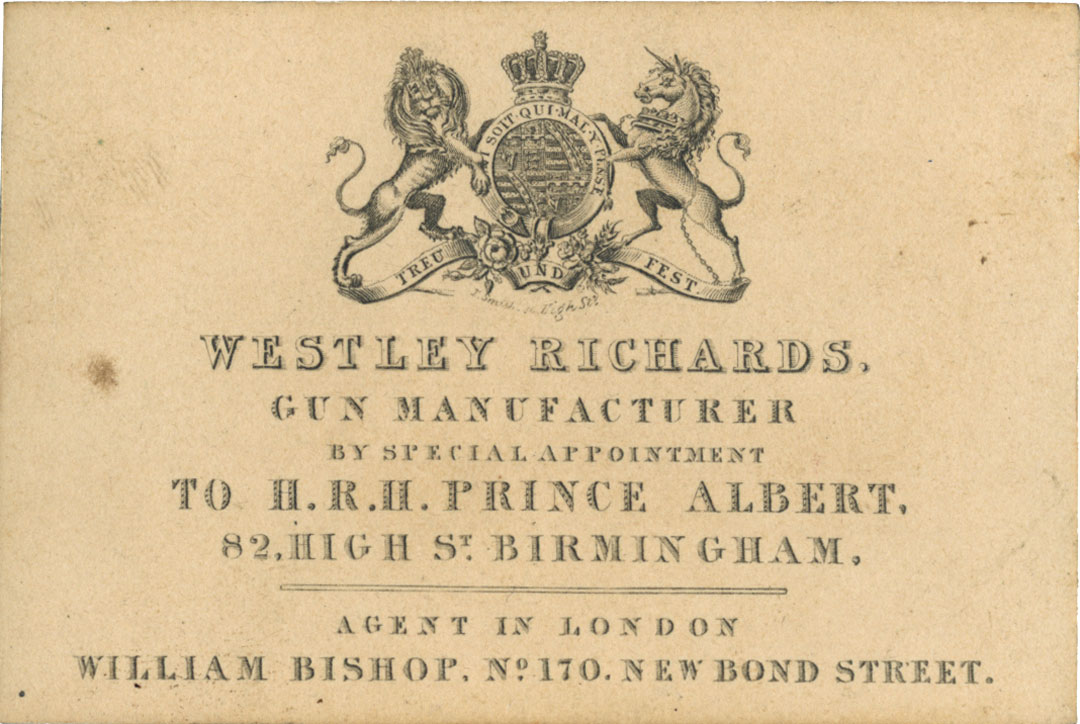 I SOIT · QUI · MAL · Y · PENSE
TREU UND FEST
J. Smith. High St.
WESTLEY RICHARDS,
GUN MANUFACTURER
BY SPECIAL APPOINTMENT
TO H.R.H. PRINCE ALBERT,
82, HIGH ST. BIRMINGHAM,
AGENT IN LONDON
WILLIAM BISHOP, No. 170. NEW BOND STREET.